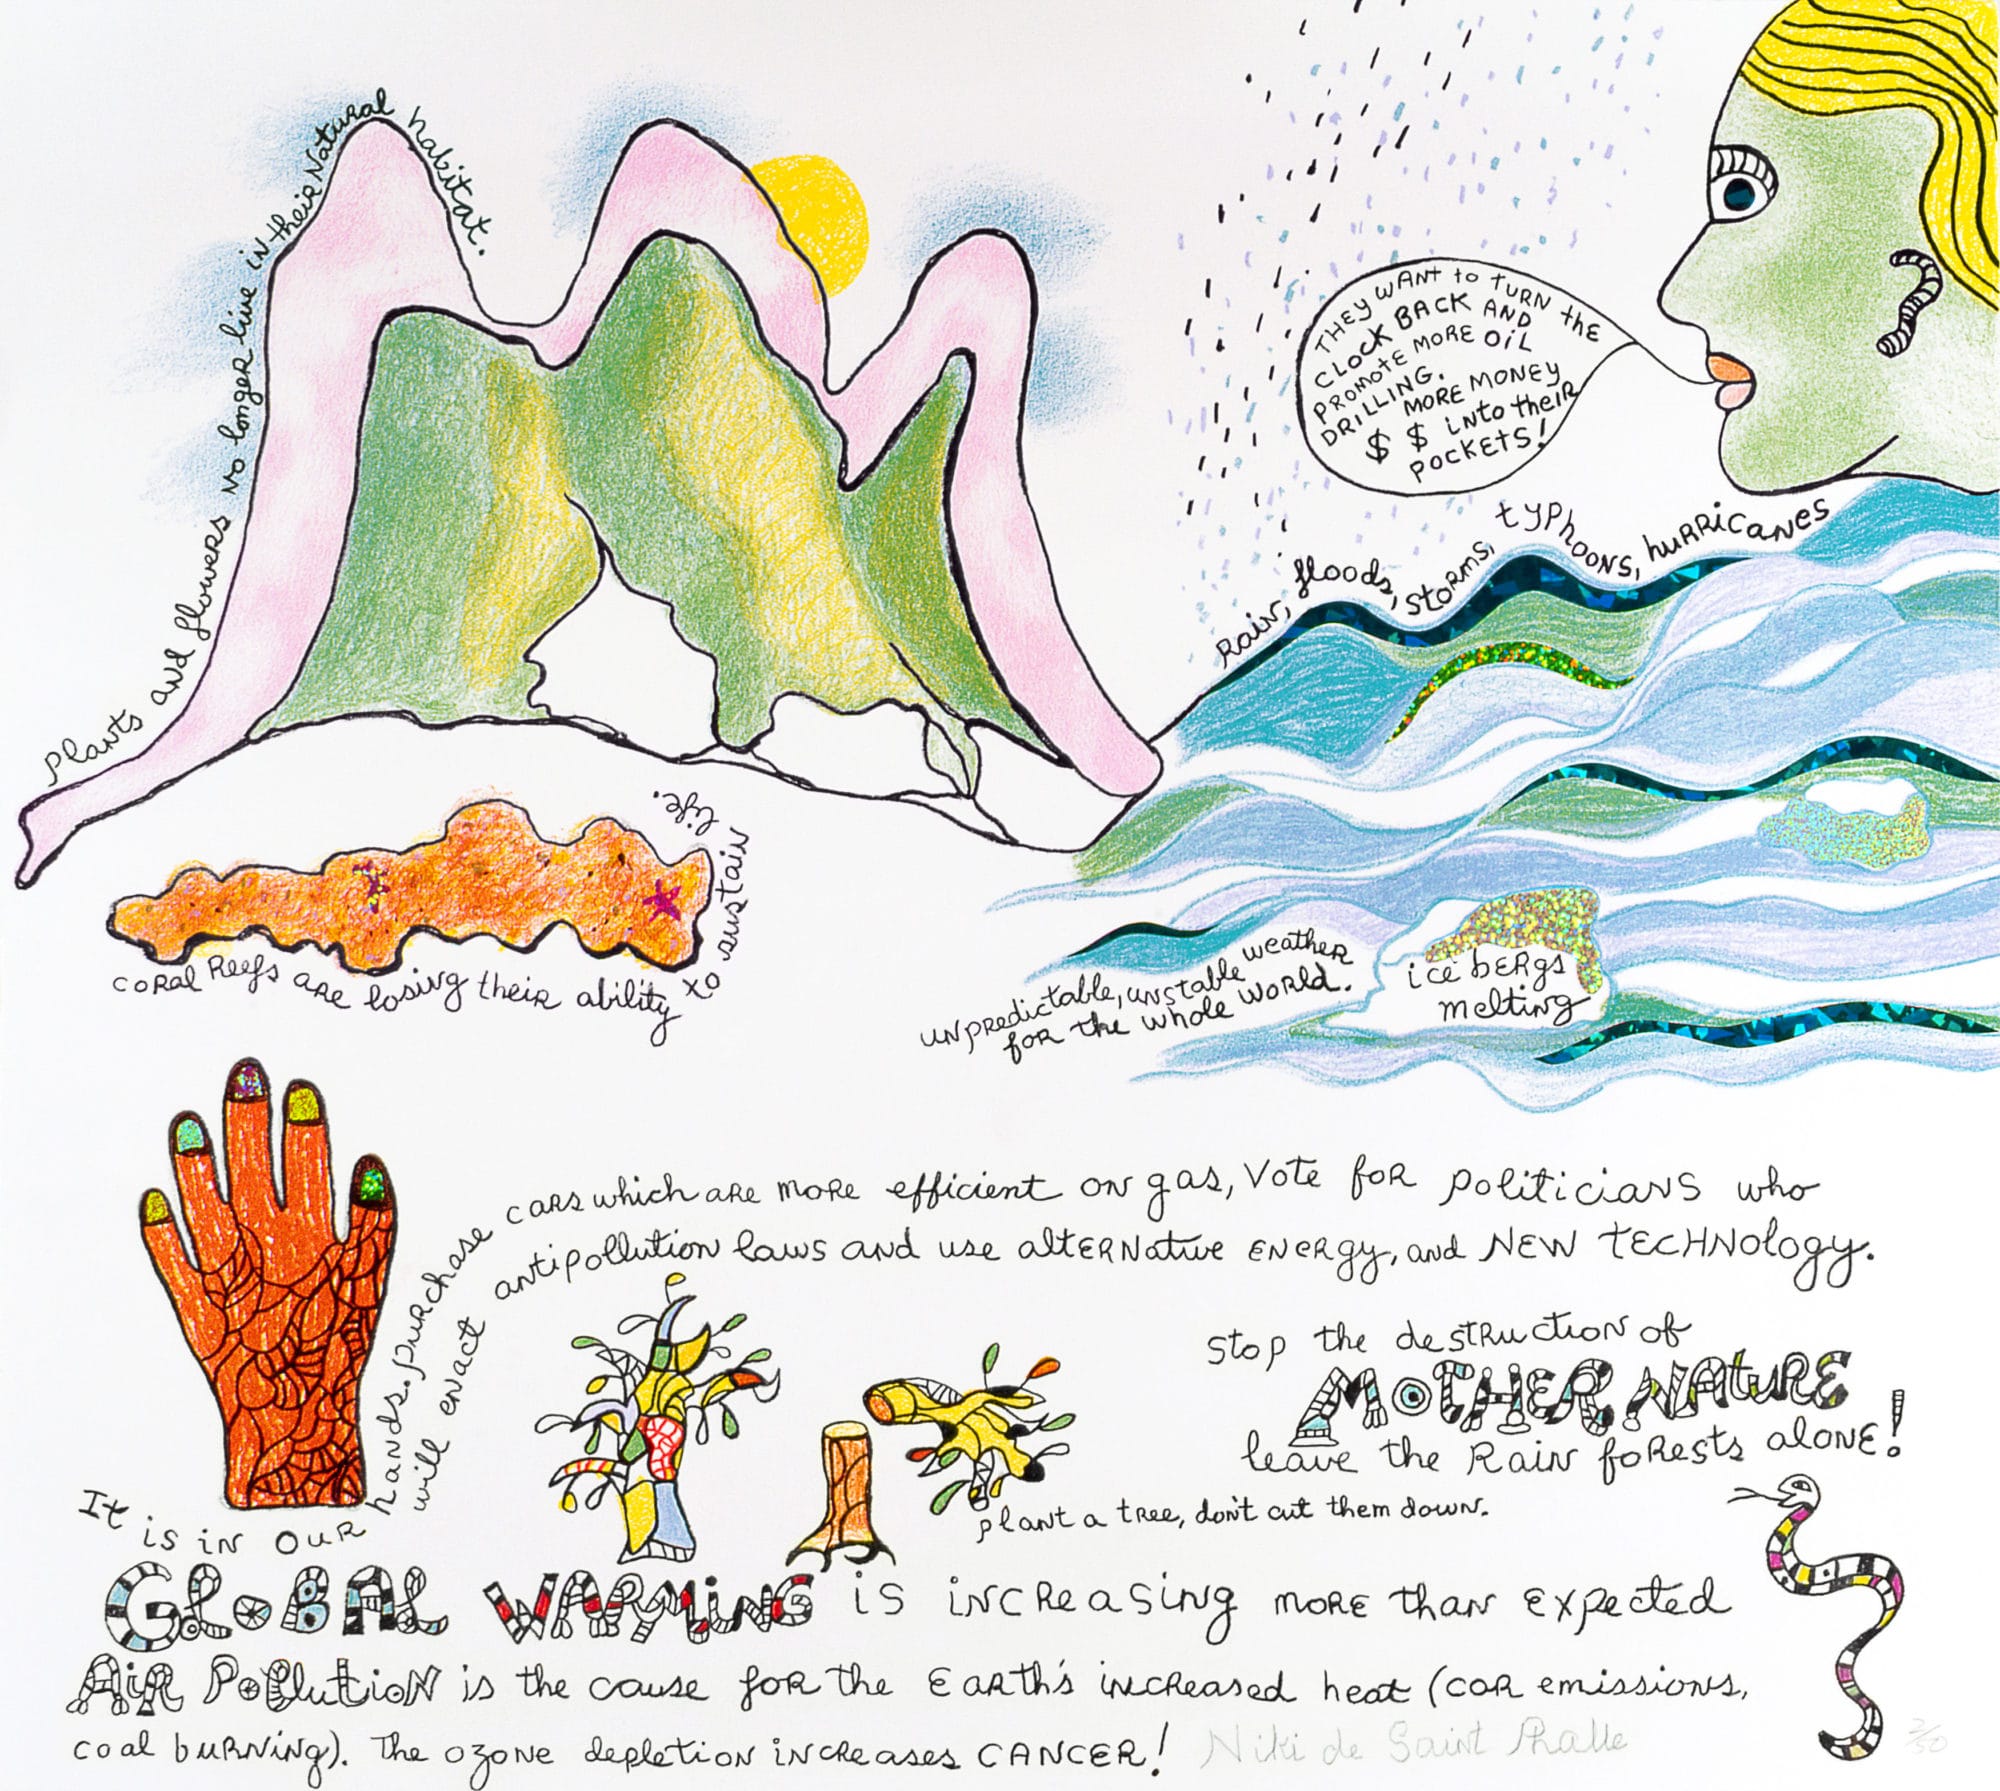 Plants and flowers no longer live in their Natural habitat.
THEY WANT to TURN the
CLOCK BACK AND
PROMOTE MORE OIL
DRILLING.
MORE MONEY
$ $ into their
POCKETS!
Rain, floods, storms, typhoons, hurricanes
coral Reefs are losing their ability to sustain life.
unpredictable, unstable weather
for the whole world.
ice bergs
melting
It is in our hands. purchase cars which are more efficient on gas, Vote for politicians who
will enact antipollution laws and use alternative energy, and NEW TECHNOlogy.
Stop the destruction of
MOTHER NATURE
leave the Rain forests alone!
plant a tree, don't cut them down.
GLOBAL WARMING is increasing more than expected
AiR Pollution is the cause for the Earth's increased heat (car emissions,
coal burning). The ozone depletion increases CANCER! Niki de Saint Phalle 2/50